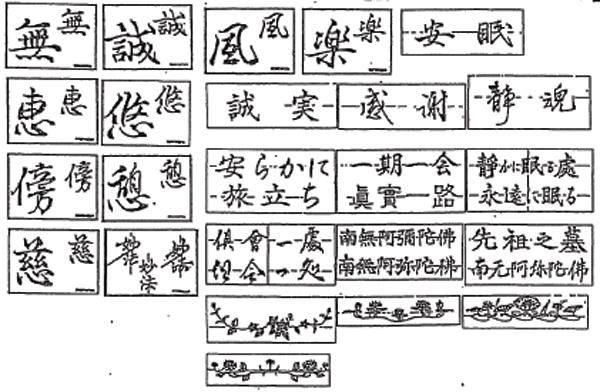 無 無
誠 誠
風 風
楽 楽
安眠
恵 恵
悠 悠
誠実
感谢
静魂
傍 傍
憩 憩
安らかに
旅立ち
一期一会
眞實一路
静かに眠る處
永遠に眠る
慈 慈
妙法
倶會一處
倶会一処
南無阿彌陀佛
南無阿弥陀佛
先祖之墓
南无阿弥陀佛